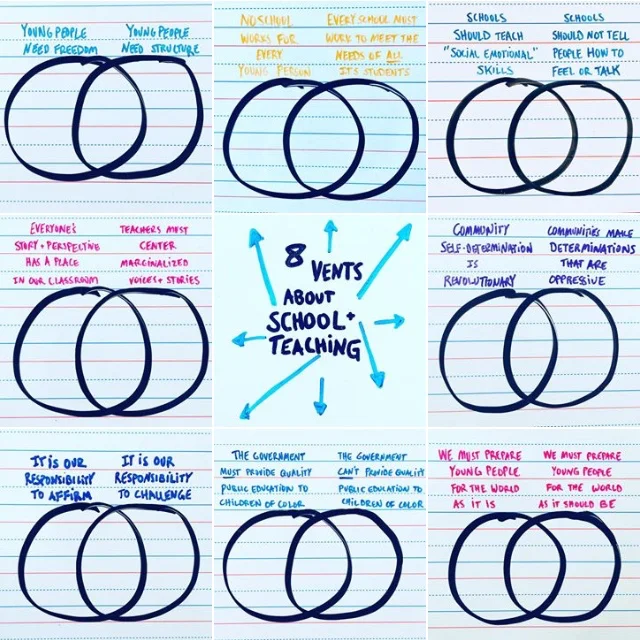 YOUNG PEOPLE
NEED FREEDOM
YOUNG PEOPLE
NEED STRUCTURE
NO SCHOOL
WORKS FOR
EVERY
YOUNG PERSON
EVERY SCHOOL MUST
WORK TO MEET THE
NEEDS OF ALL
IT'S STUDENTS
SCHOOLS
SHOULD TEACH
"SOCIAL EMOTIONAL"
SKILLS
SCHOOLS
SHOULD NOT TELL
PEOPLE HOW TO
FEEL OR TALK
EVERYONE'S
STORY + PERSPECTIVE
HAS A PLACE
IN OUR CLASSROOM
TEACHERS MUST
CENTER
MARGINALIZED
VOICES + STORIES
8 VENTS
ABOUT
SCHOOL +
TEACHING
COMMUNITY
SELF-DETERMINATION
IS
REVOLUTIONARY
COMMUNITIES MAKE
DETERMINATIONS
THAT ARE
OPPRESSIVE
IT IS OUR
RESPONSIBILITY
TO AFFIRM
IT IS OUR
RESPONSIBILITY
TO CHALLENGE
THE GOVERNMENT
MUST PROVIDE QUALITY
PUBLIC EDUCATION TO
CHILDREN OF COLOR
THE GOVERNMENT
CAN'T PROVIDE QUALITY
PUBLIC EDUCATION TO
CHILDREN OF COLOR
WE MUST PREPARE
YOUNG PEOPLE
FOR THE WORLD
AS IT IS
WE MUST PREPARE
YOUNG PEOPLE
FOR THE WORLD
AS IT SHOULD BE